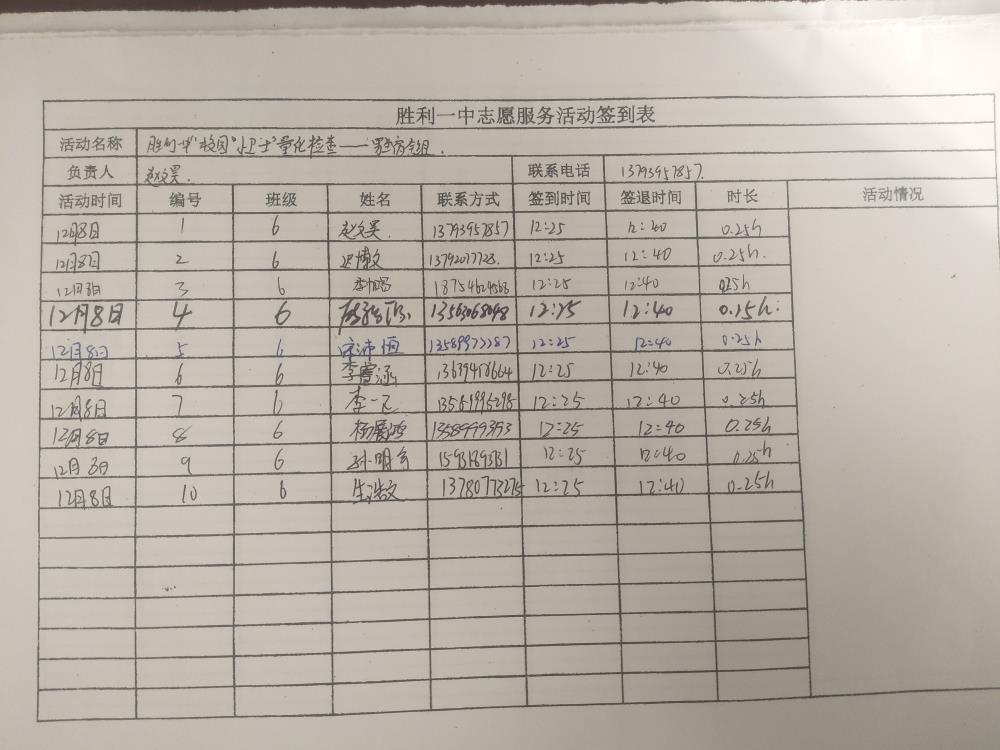 胜利一中志愿服务活动签到表
活动名称 胜利一中"校园"小卫士"量化检查——男宿舍组.
负责人 赵文昊. 联系电话 13793957857.
活动时间 编号 班级 姓名 联系方式 签到时间 签退时间 时长 活动情况
12月8日 1 6 赵文昊. 13793957857 12:25 12:40 0.25h
12月8日 2 6 迟博文 13792077728. 12:25 12:40 0.25h.
12月8日 3 6 18754624568 12:25 12:40 0.25h
12月8日 4 6 13563068048 12:25 12:40 0.25h.
12月8日 5 6 宋沛恒 13589977287 12:25 12:40 0.25h
12月8日 6 6 李睿涵 13639458664 12:25 12:40 0.25h
12月8日 7 6 李一凡 13561995298 12:25 12:40 0.25h
12月8日 8 6 杨展鸿 1358999393 12:25 12:40 0.25h
12月8日 9 6 12:25 12:40 0.25h
12月8日 10 6 生浩文 13780773275 12:25 12:40 0.25h